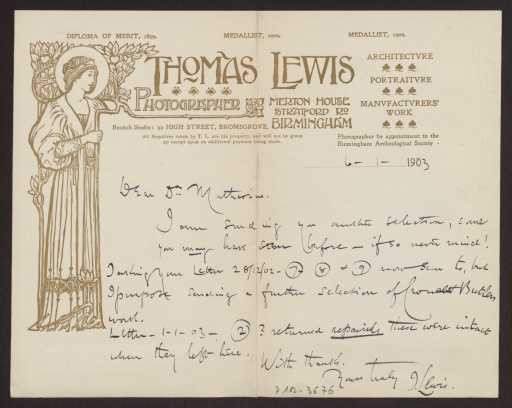 DIPLOMA OF MERIT, 1899. MEDALLIST, 1900. MEDALLIST, 1902.
THOMAS LEWIS
PHOTOGRAPHER
MERTON HOUSE
STRATFORD RD
BIRMINGHAM
ARCHITECTURE
PORTRAITURE
MANUFACTURERS'
WORK
Branch Studio: 30 HIGH STREET, BROMSGROVE.
All Negatives taken by T. L. are his property, and will not be given
up except upon an additional payment being made.
Photographer by appointment to the
Birmingham Archæological Society
6-1-1903
Dear Dr
I am sending you another selection, some
you may have seen before - if so never mind!
your Letter 28/12/02 - 7 8 & 9 to, but
I propose sending a further selection of Butlers
work.
Letter - 1-1-03 - 2 3 returned repaired these were intact
when they left here. With thanks.
Yours truly T Lewis.